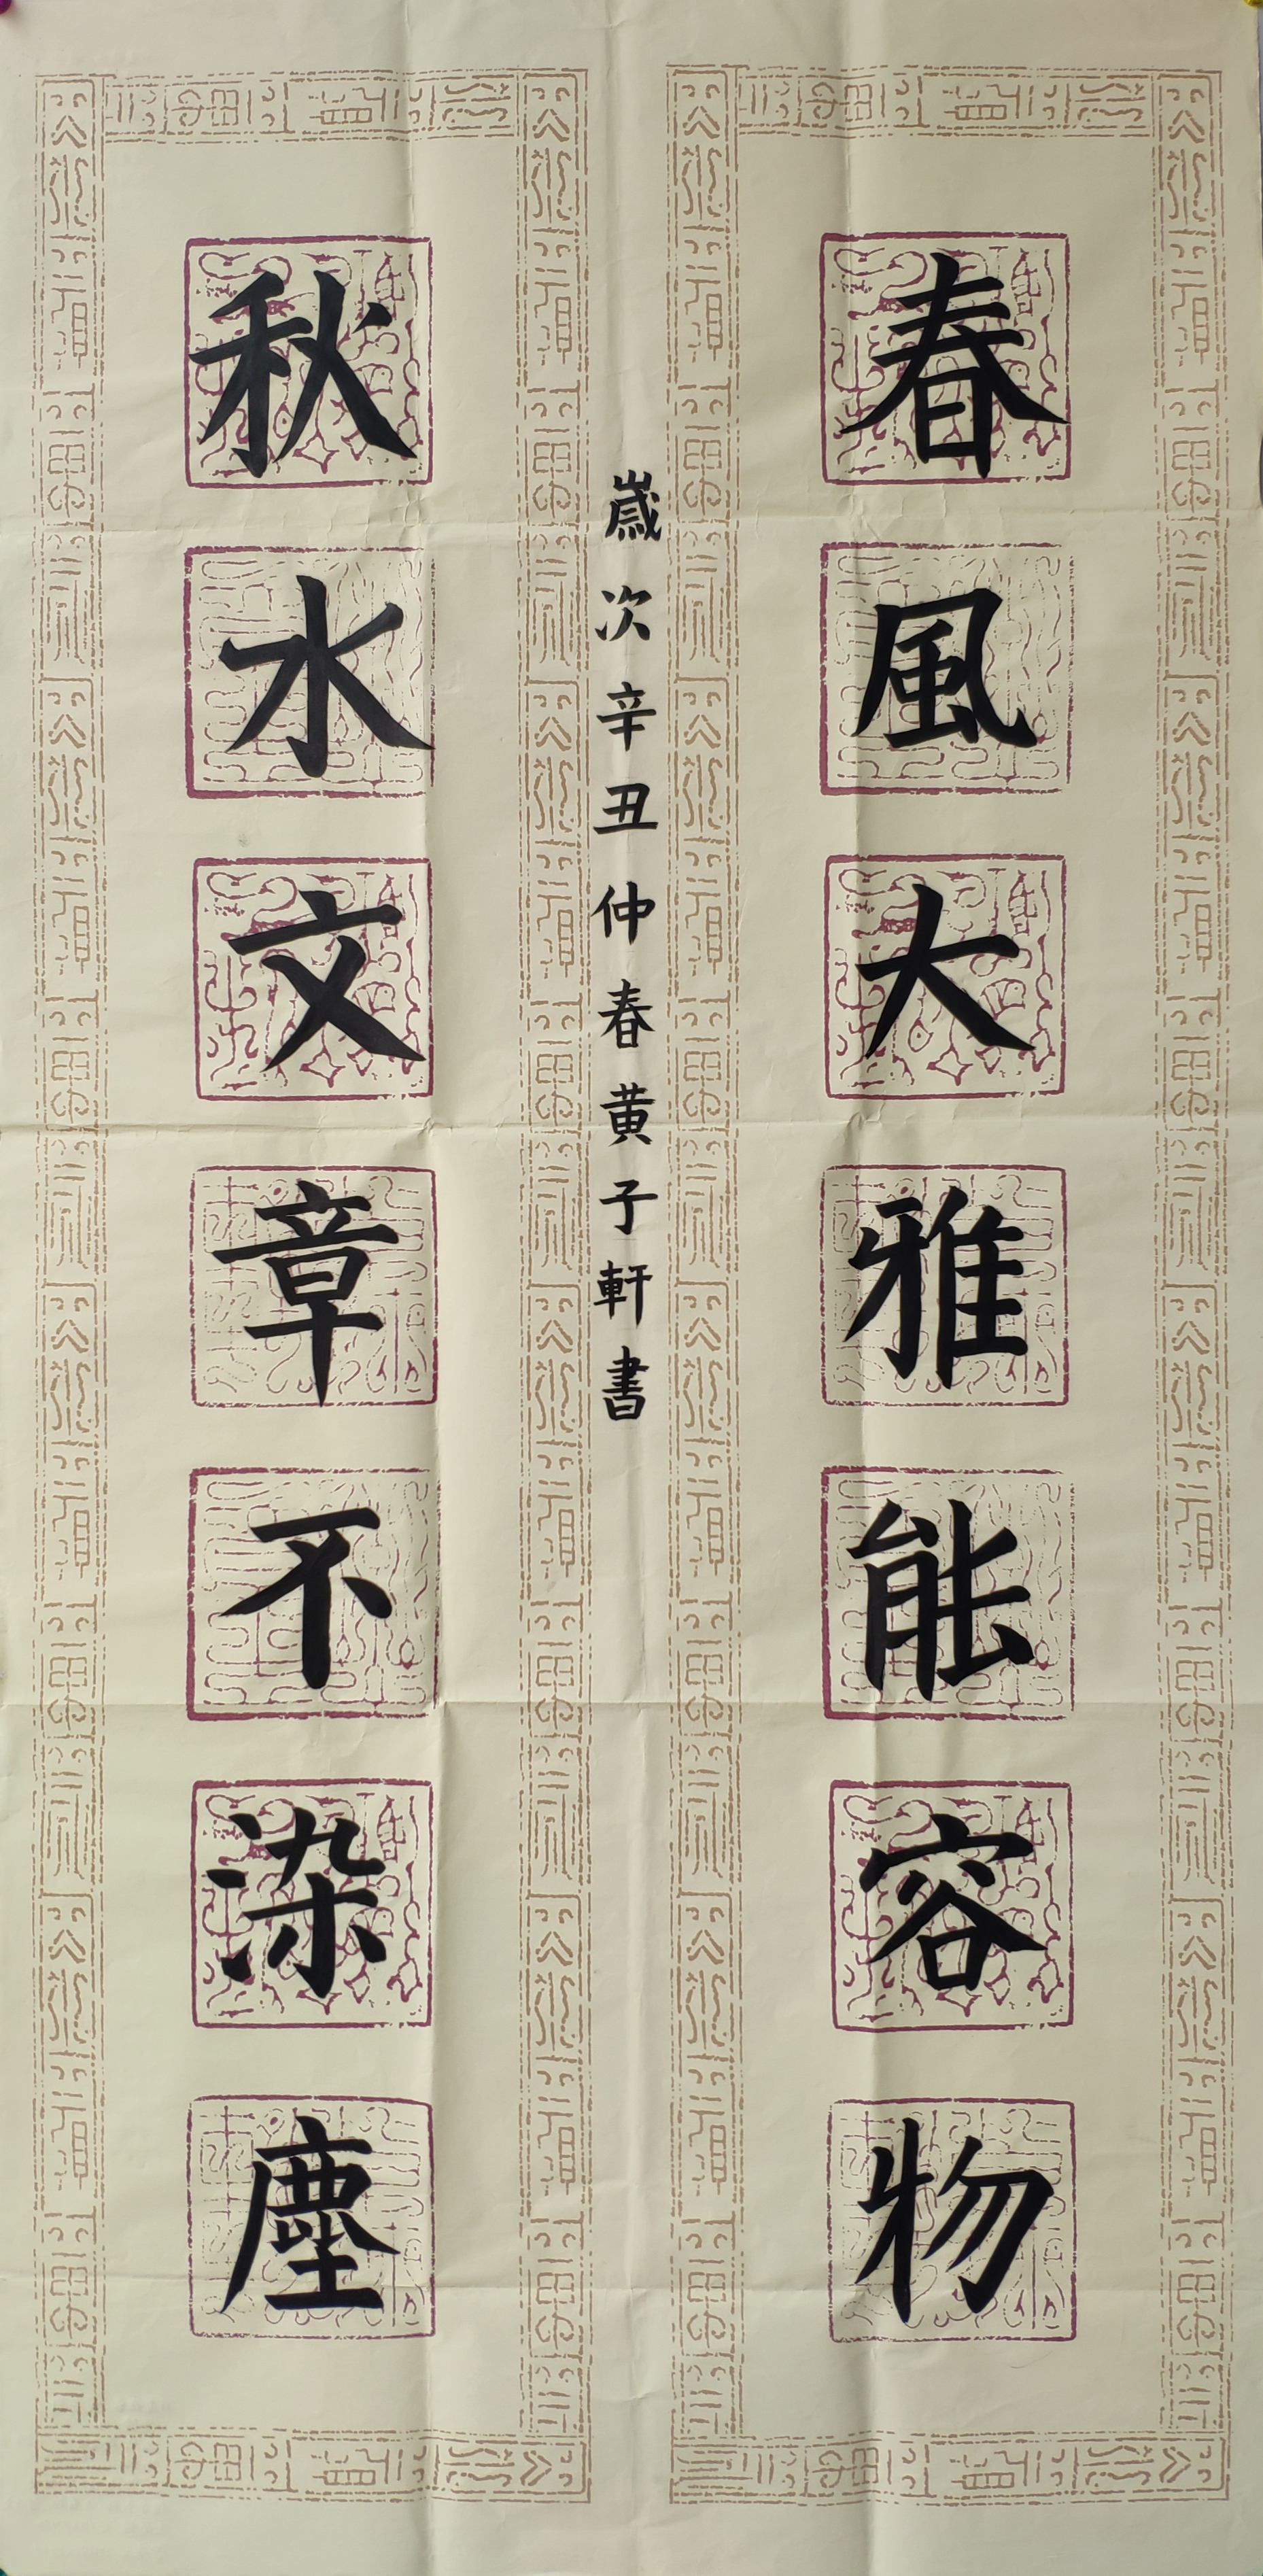 春風大雅能容物
秋水文章不染塵
歲次辛丑仲春黄子軒書